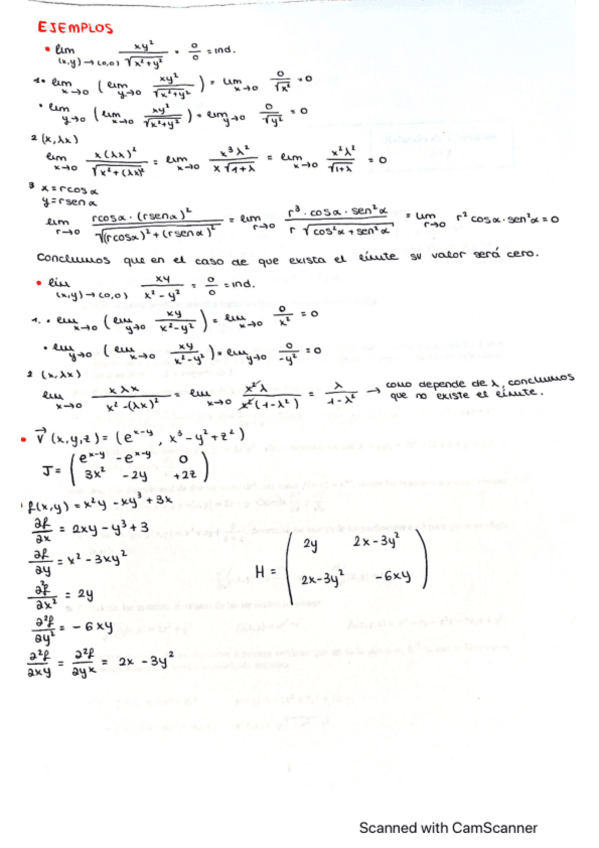 EJEMPLOS
• lim (x,y)→(0,0) xy²/√(x²+y²) = 0/0 = ind.
1. • lim x→0 ( lim y→0 xy²/√(x²+y²) ) = lim x→0 0/√x² = 0
• lim y→0 ( lim x→0 xy²/√(x²+y²) ) = lim y→0 0/√y² = 0
2 (x, λx)
lim x→0 x(λx)²/√(x²+(λx)²) = lim x→0 x³λ²/x√(1+λ) = lim x→0 x²λ²/√(1+λ) = 0
3 x = r cos α
y = r sen α
lim r→0 r cos α · (r sen α)²/√((r cos α)² + (r sen α)²) = lim r→0 r³ · cos α · sen²α / r √(cos²α + sen²α) = lim r→0 r² cos α · sen²α = 0
Concluimos que en el caso de que exista el límite su valor será cero.
• lim (x,y)→(0,0) xy/(x²-y²) = 0/0 = ind.
1. • lim x→0 ( lim y→0 xy/(x²-y²) ) = lim x→0 0/x² = 0
• lim y→0 ( lim x→0 xy/(x²-y²) ) = lim y→0 0/-y² = 0
2 (x, λx)
lim x→0 xλx/(x²-(λx)²) = lim x→0 x²λ/x²(1-λ²) = λ/(1-λ²) → como depende de λ, concluimos
que no existe el límite.
• V⃗ (x,y,z) = (e^(x-y), x³-y²+z²)
J = ( e^(x-y) -e^(x-y) 0
3x² -2y +2z )
f(x,y) = x²y - xy³ + 3x
∂f/∂x = 2xy - y³ + 3
∂f/∂y = x² - 3xy²
∂²f/∂x² = 2y
∂²f/∂y² = -6xy
∂²f/∂xy = ∂²f/∂yx = 2x - 3y²
H = ( 2y 2x-3y²
2x-3y² -6xy )
Scanned with CamScanner